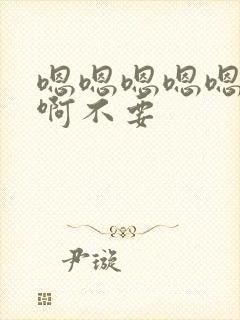 嗯嗯嗯嗯嗯
啊不要
尹璇